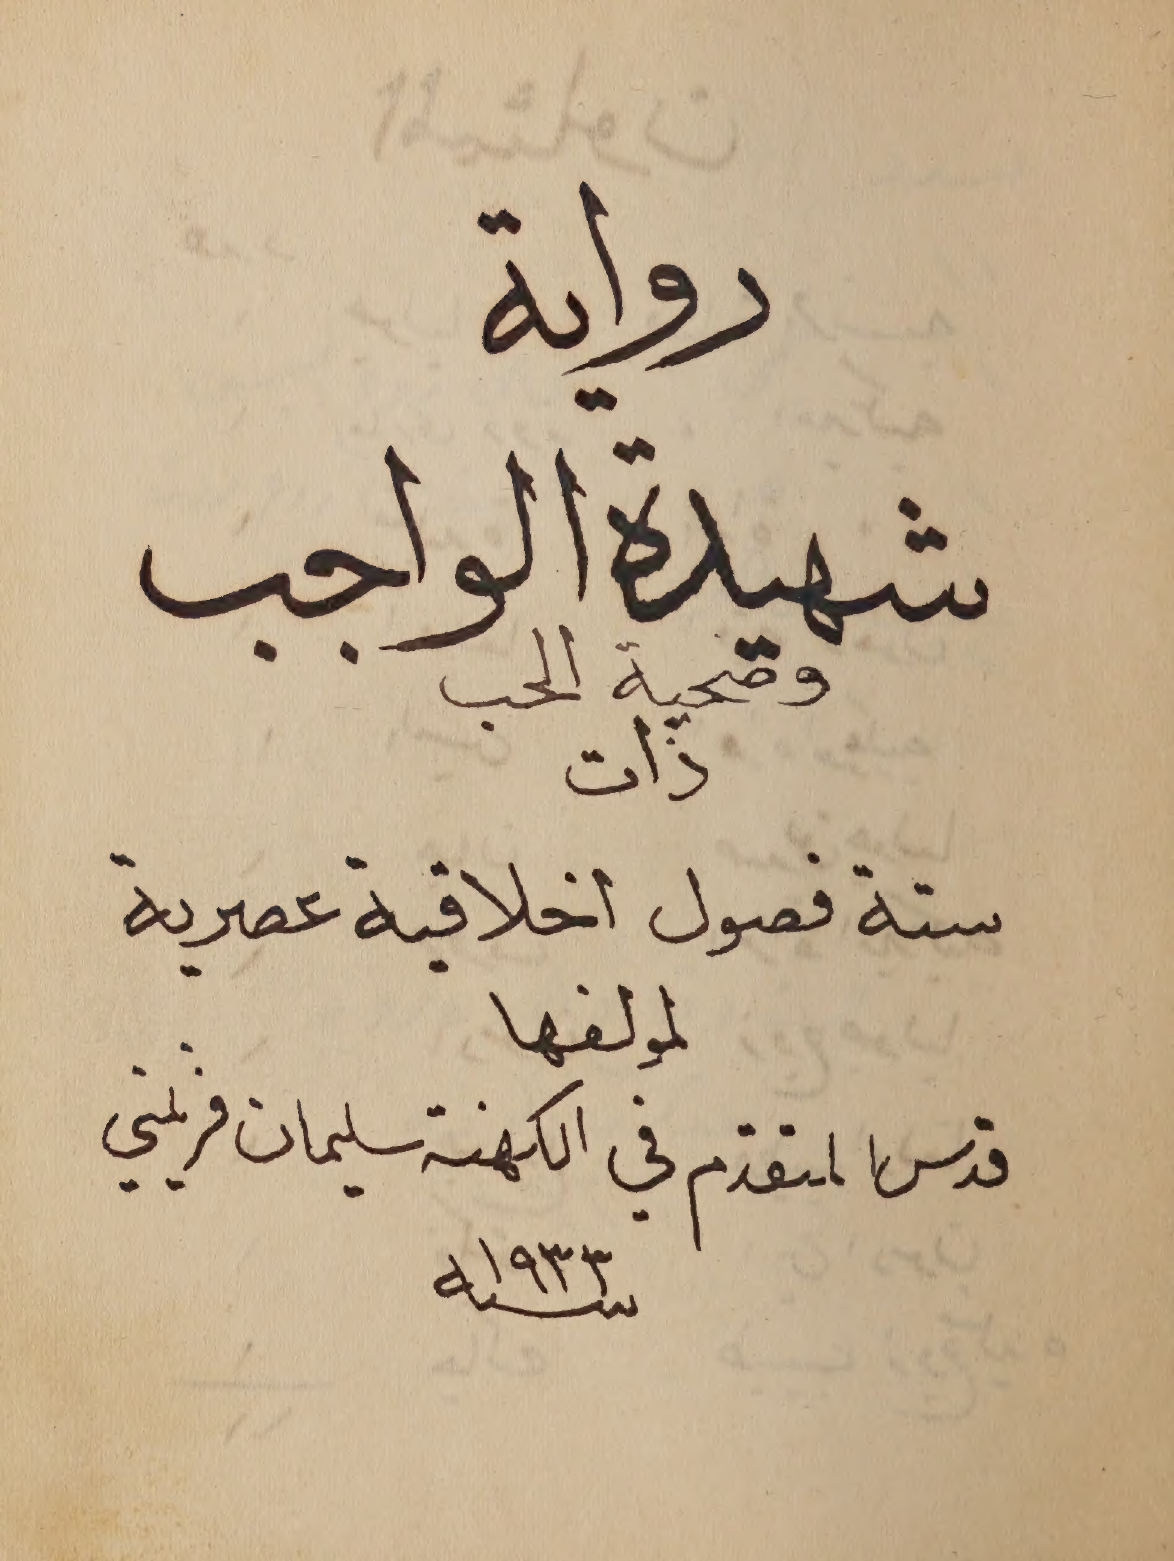 رواية
شهيدة الواجب
وضحية الحب
ذات
ستة فصول اخلاقية عصرية
لمولفها
قدس المتقدم في الكهنة سليمان فرينيني
سنه ١٩٣٣